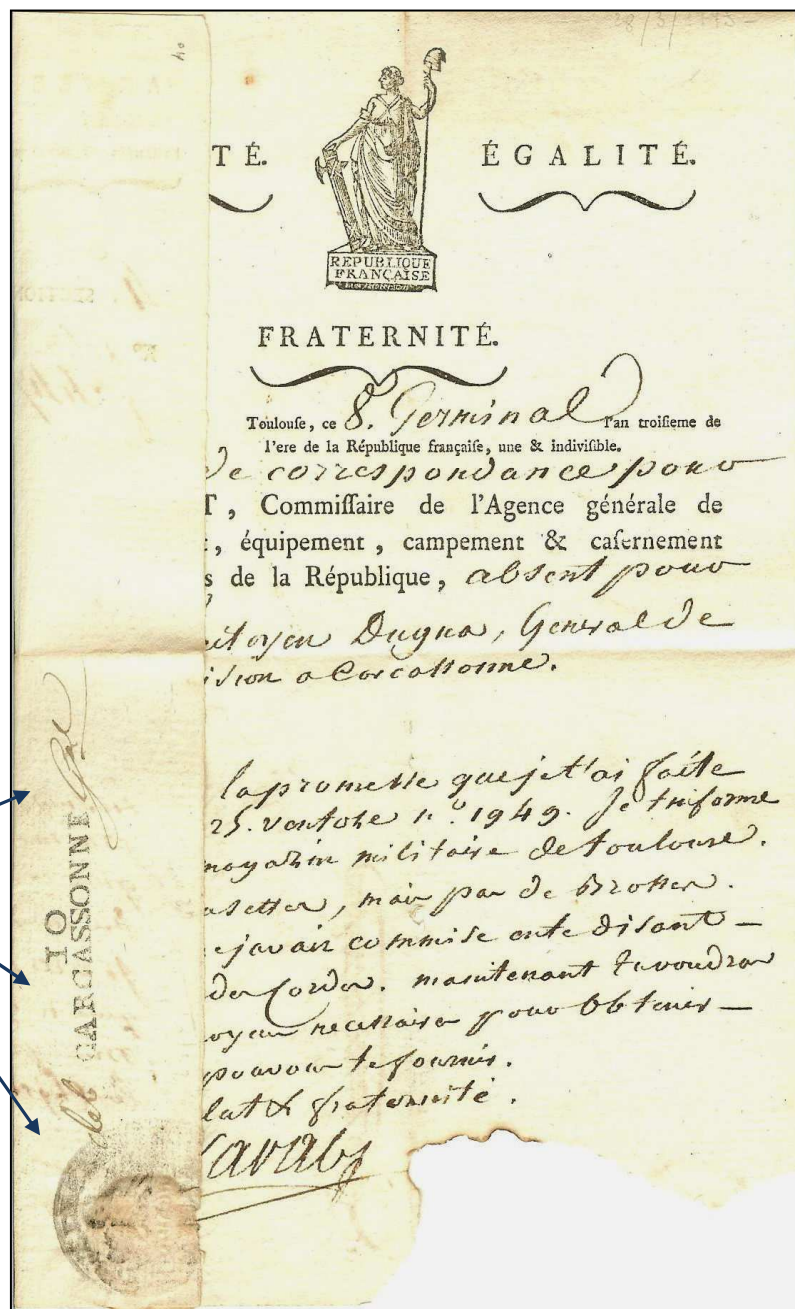 28/3/1795
TÉ.
ÉGALITÉ.
REPUBLIQUE
FRANÇAISE
FRATERNITÉ.
Toulouse, ce 8. Germinal l'an troisieme de
l'ere de la République française, une & indivisible.
de correspondance pour
T, Commissaire de l'Agence générale de
, équipement, campement & casernement
s de la République, absent pour
citoyen Dugua, General de
ision a Carcassonne.
la promesse que je t'ai faite
25. ventose n.º 1949. Je t'informe
magazin militaire de toulouse.
mais pas de Brosses.
e javais commise en te disant -
des Cordes. maintenant tu voudras
oyens necessaires pour Obtenir -
pouvoir te fournir.
lut & fraternité.
SECTION
Nº
deb
10
CARCASSONNE